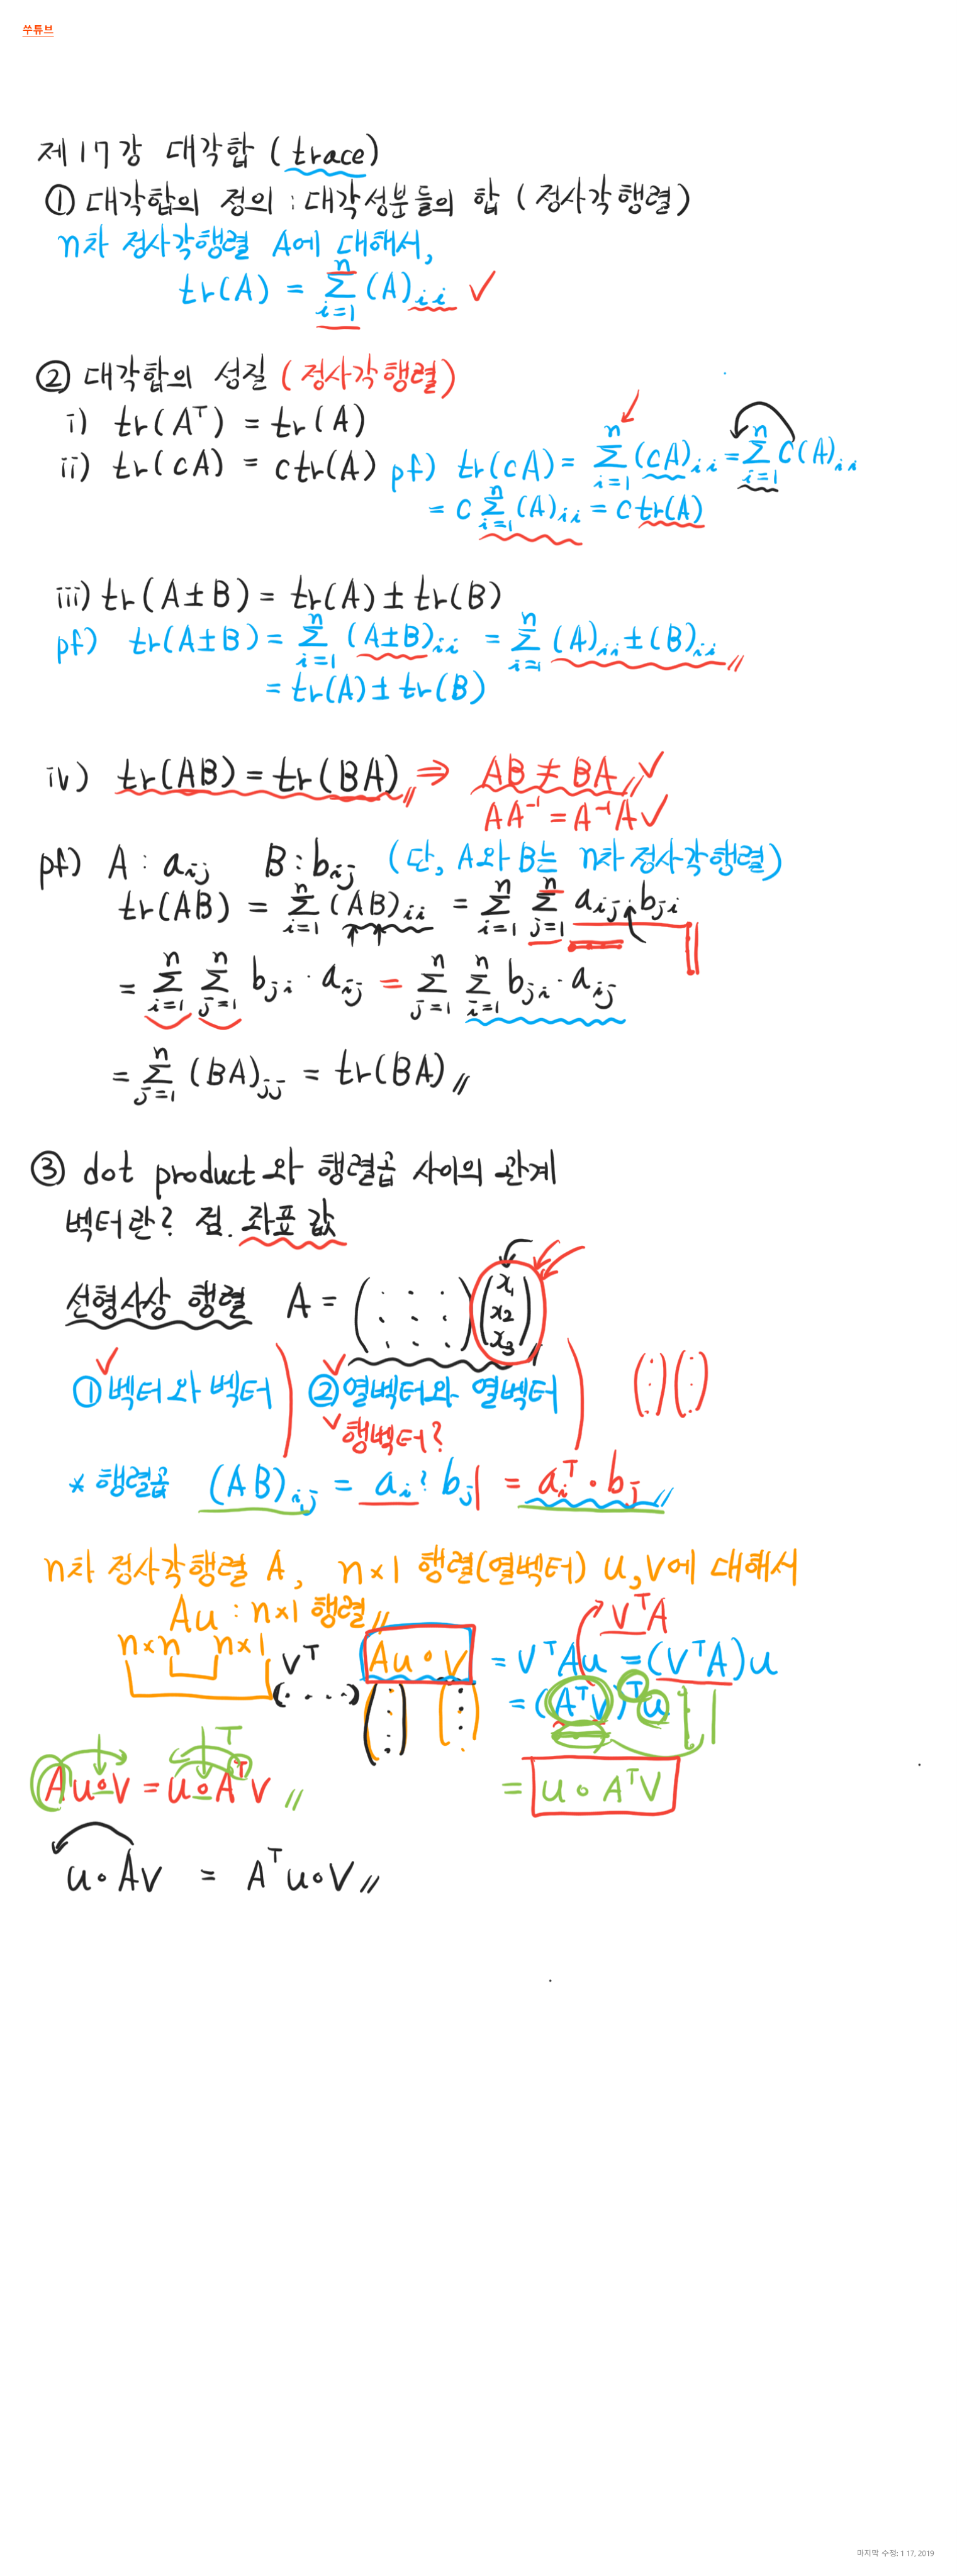 쑤튜브
제17강 대각합 (trace)
① 대각합의 정의 : 대각성분들의 합 (정사각행렬)
n차 정사각행렬 A에 대해서,
tr(A) = \sum_{i=1}^{n} (A)_{ii} ✓
② 대각합의 성질 (정사각행렬)
i) tr(A^T) = tr(A)
ii) tr(cA) = ctr(A) pf) tr(cA) = \sum_{i=1}^{n} (cA)_{ii} = \sum_{i=1}^{n} c(A)_{ii}
= c \sum_{i=1}^{n} (A)_{ii} = c tr(A)
iii) tr(A±B) = tr(A) ± tr(B)
pf) tr(A±B) = \sum_{i=1}^{n} (A±B)_{ii} = \sum_{i=1}^{n} (A)_{ii} ± (B)_{ii} //
= tr(A) ± tr(B)
iv) tr(AB) = tr(BA) // ⇒ AB ≠ BA // ✓
AA^{-1} = A^{-1}A ✓
pf) A : a_{ij} B : b_{ij} (단, A와 B는 n차 정사각행렬)
tr(AB) = \sum_{i=1}^{n} (AB)_{ii} = \sum_{i=1}^{n} \sum_{j=1}^{n} a_{ij} · b_{ji}
= \sum_{i=1}^{n} \sum_{j=1}^{n} b_{ji} · a_{ij} = \sum_{j=1}^{n} \sum_{i=1}^{n} b_{ji} · a_{ij}
= \sum_{j=1}^{n} (BA)_{jj} = tr(BA) //
③ dot product와 행렬곱 사이의 관계
벡터란? 점. 좌표 값
선형사상 행렬 A = ( ) (x_1 x_2 x_3) //
① 벡터와 벡터 ) ② 열벡터와 열벡터 )
✓ 행벡터?
* 행렬곱 (AB)_{ij} = a_i · b_j = a_i^T · b_j //
n차 정사각행렬 A, n×1 행렬(열벡터) u, v에 대해서
Au : n×1 행렬 //
v^T A
n×n n×1 v^T Au · v = v^T Au = (v^T A)u
= (A^T v)^T u
Au∘v = u∘A^T v // = u∘A^T v
u∘Av = A^T u∘v //
마지막 수정: 1 17, 2019